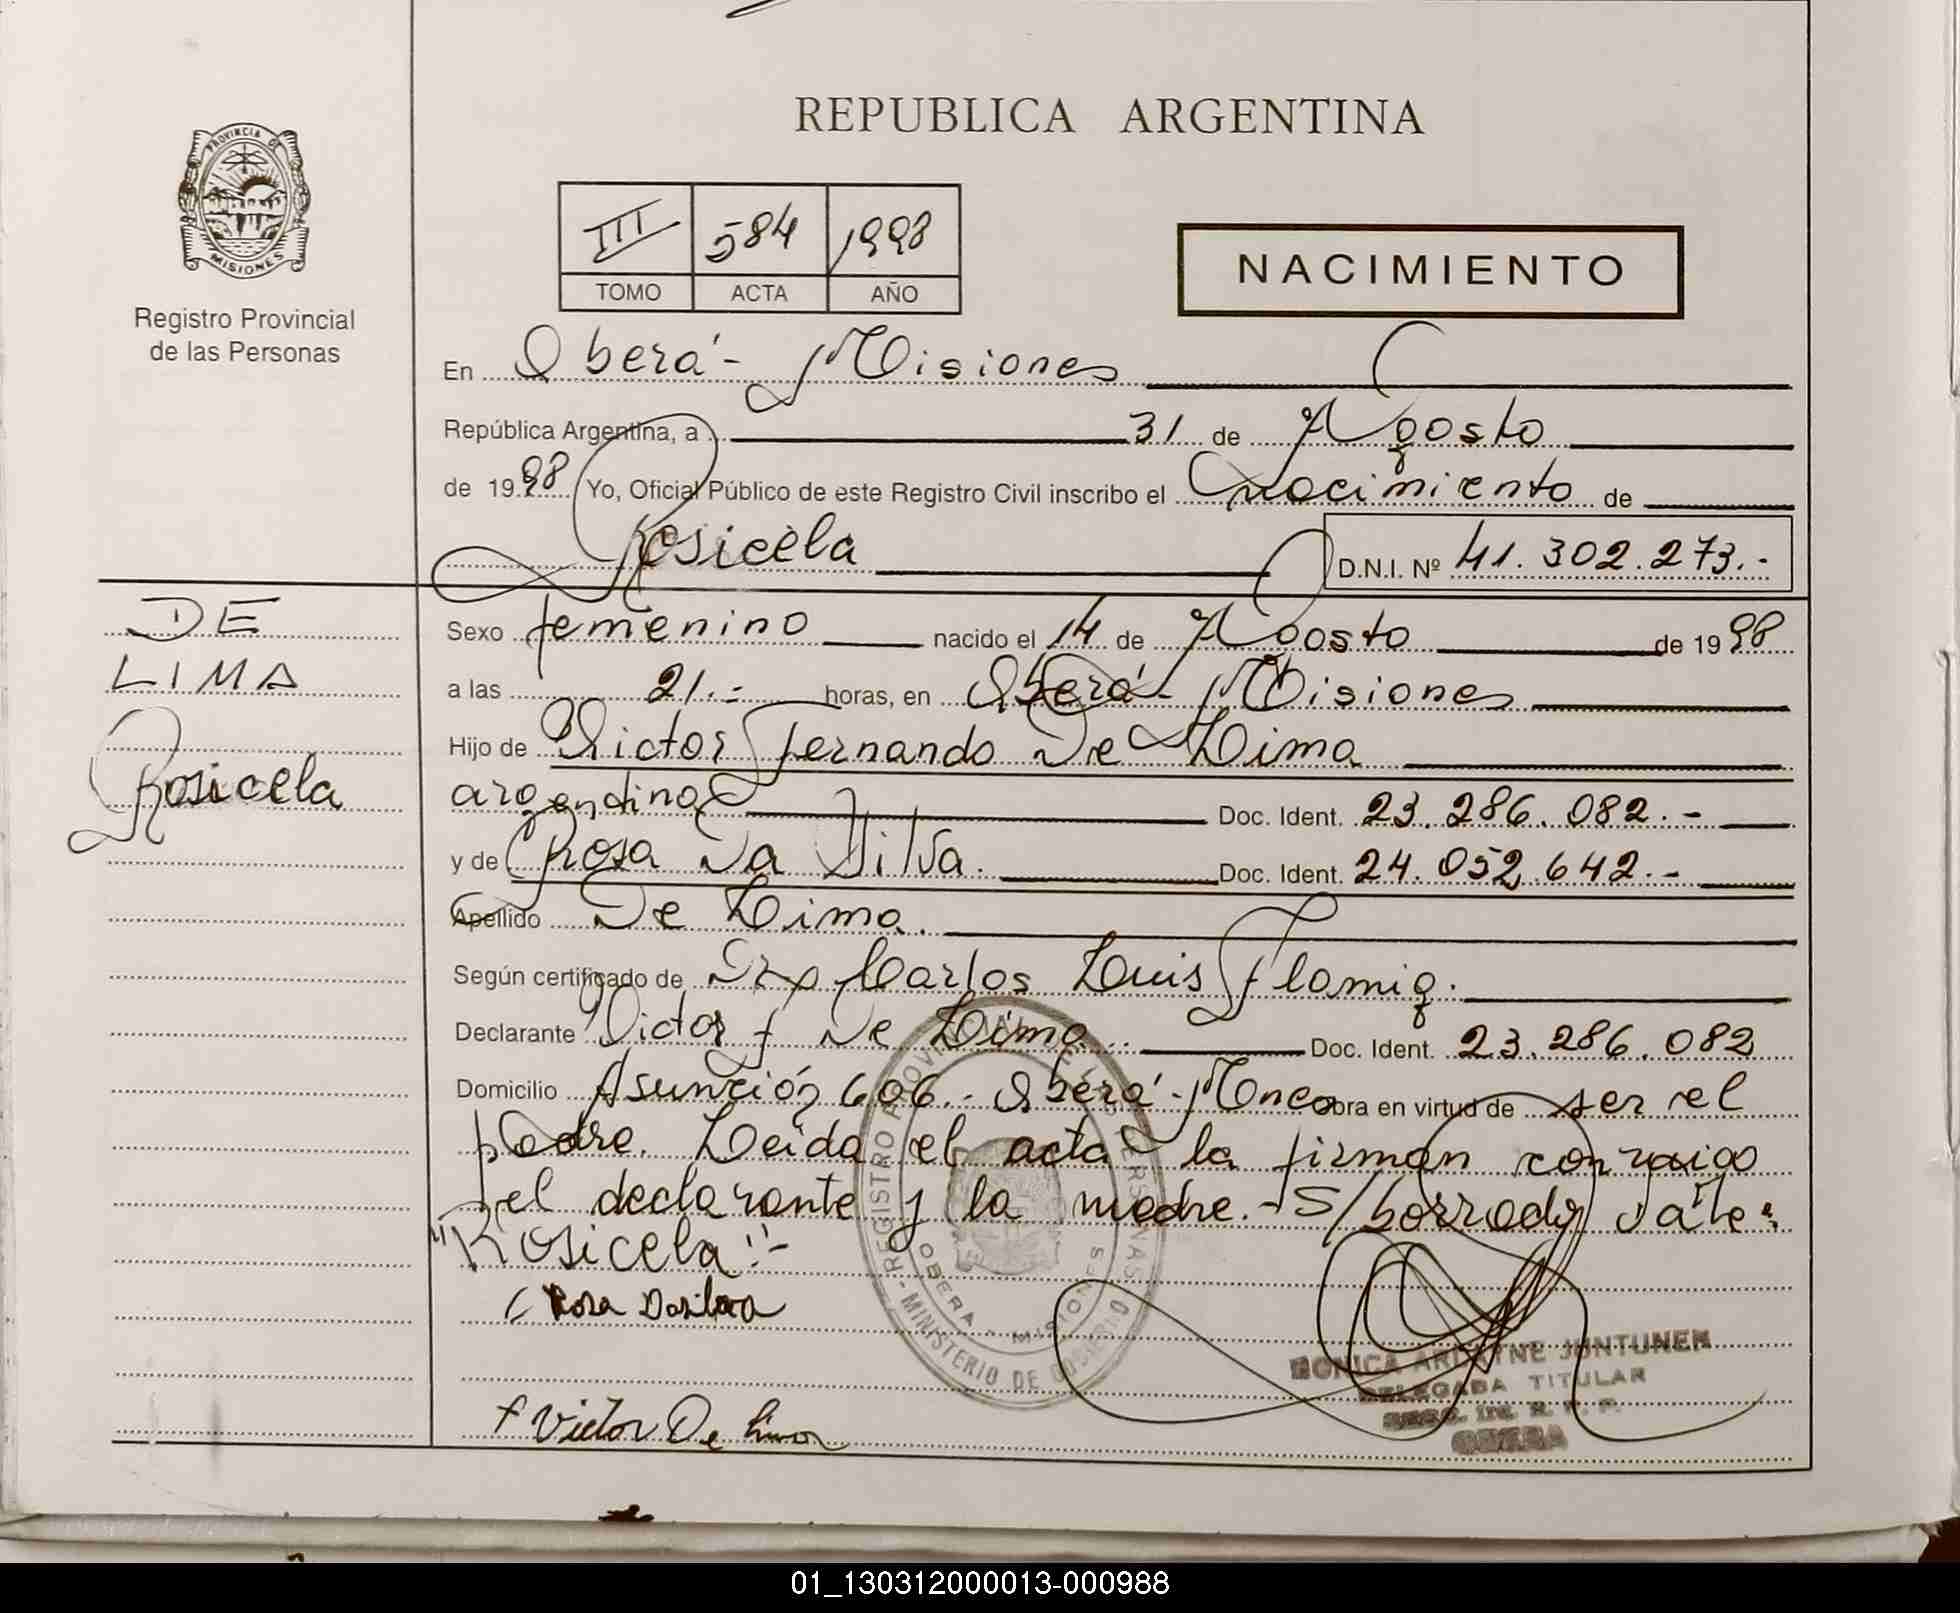 REPUBLICA ARGENTINA
PROVINCIA DE
MISIONES
Registro Provincial
de las Personas
III 584 1998
TOMO ACTA AÑO
NACIMIENTO
En Oberá - Misiones
República Argentina, a 31 de Agosto
de 1998 Yo, Oficial Público de este Registro Civil inscribo el nacimiento de
Rosicela D.N.I. Nº 41.302.273.-
DE
LIMA
Rosicela
Sexo femenino nacido el 14 de Agosto de 1998
a las 21.- horas, en Oberá - Misiones
Hijo de Victor Fernando De Lima
argentino Doc. Ident. 23.286.082.-
y de Rosa Da Silva. Doc. Ident. 24.052.642.-
Apellido De Lima.
Según certificado de Dr. Carlos Luis Flamig.
Declarante Victor F De Lima. Doc. Ident. 23.286.082
Domicilio Asunción 606.- Oberá - Mnes obra en virtud de ser el
padre. Leida el acta la firman conmigo
el declarante y la madre.- S/borrado Vale:
"Rosicela".-
Rosa Dasilva
REGISTRO PROVINCIAL DE LAS PERSONAS
OBERA - MISIONES
MINISTERIO DE GOBIERNO
JUNTUNEN
DELEGADA TITULAR
OBERA
Victor De Lima
01_130312000013-000988